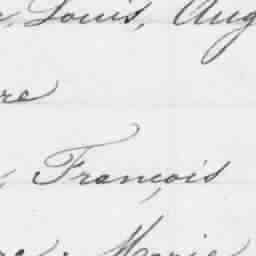 Louis, Aug
re
François
Marie